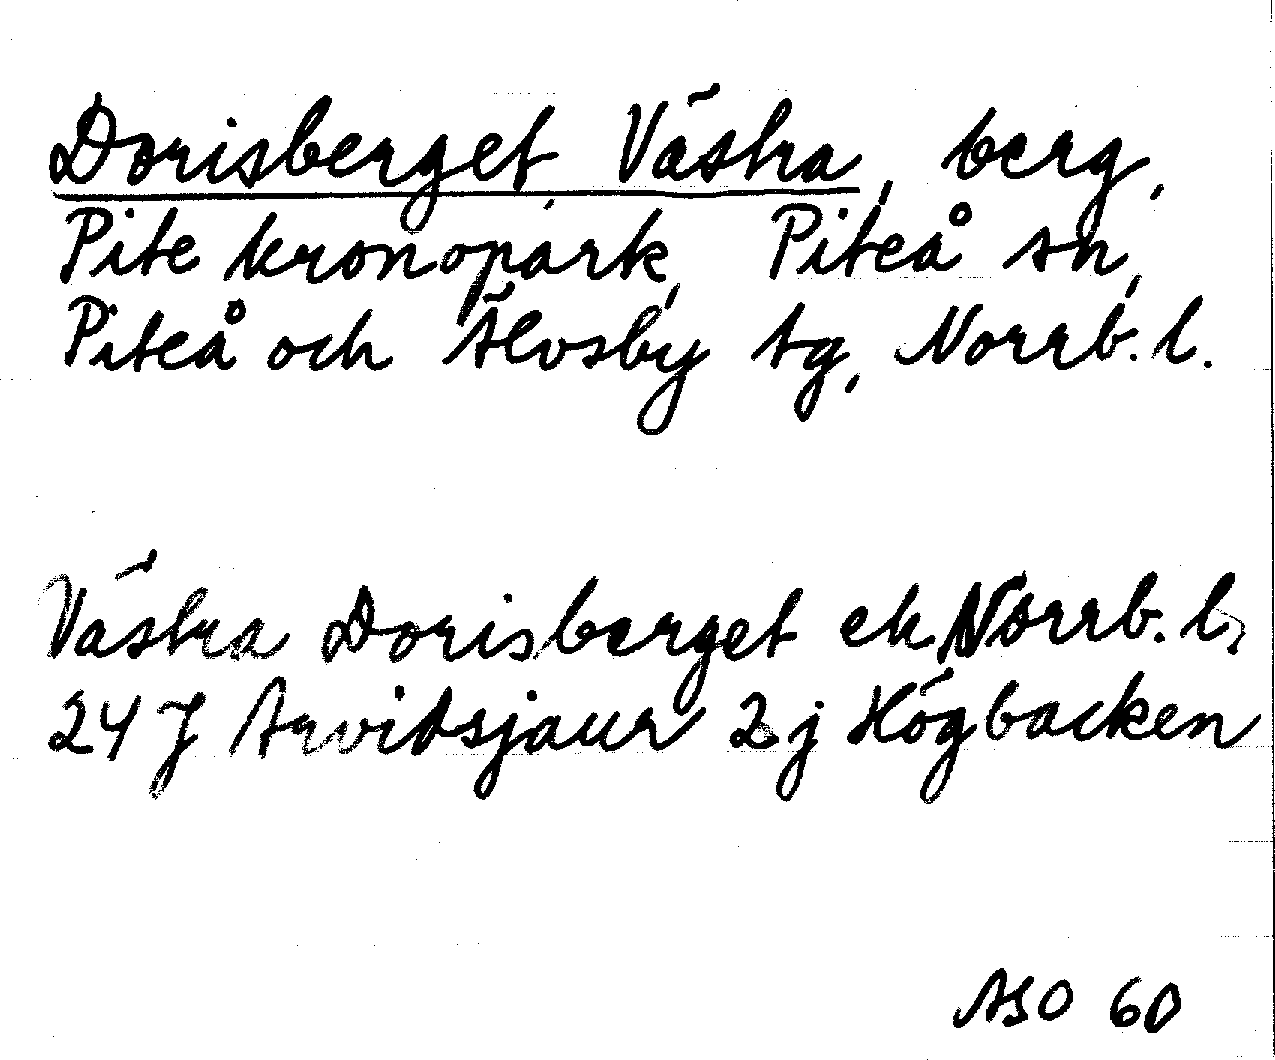 Dorisberget Västra, berg,
Pite kronopark, Piteå sn,
Piteå och Älvsby tg, Norrb. l.
Västra Dorisberget ek Norrb. l,
24 J Arvidsjaur 2 j Högbacken
ASO 60